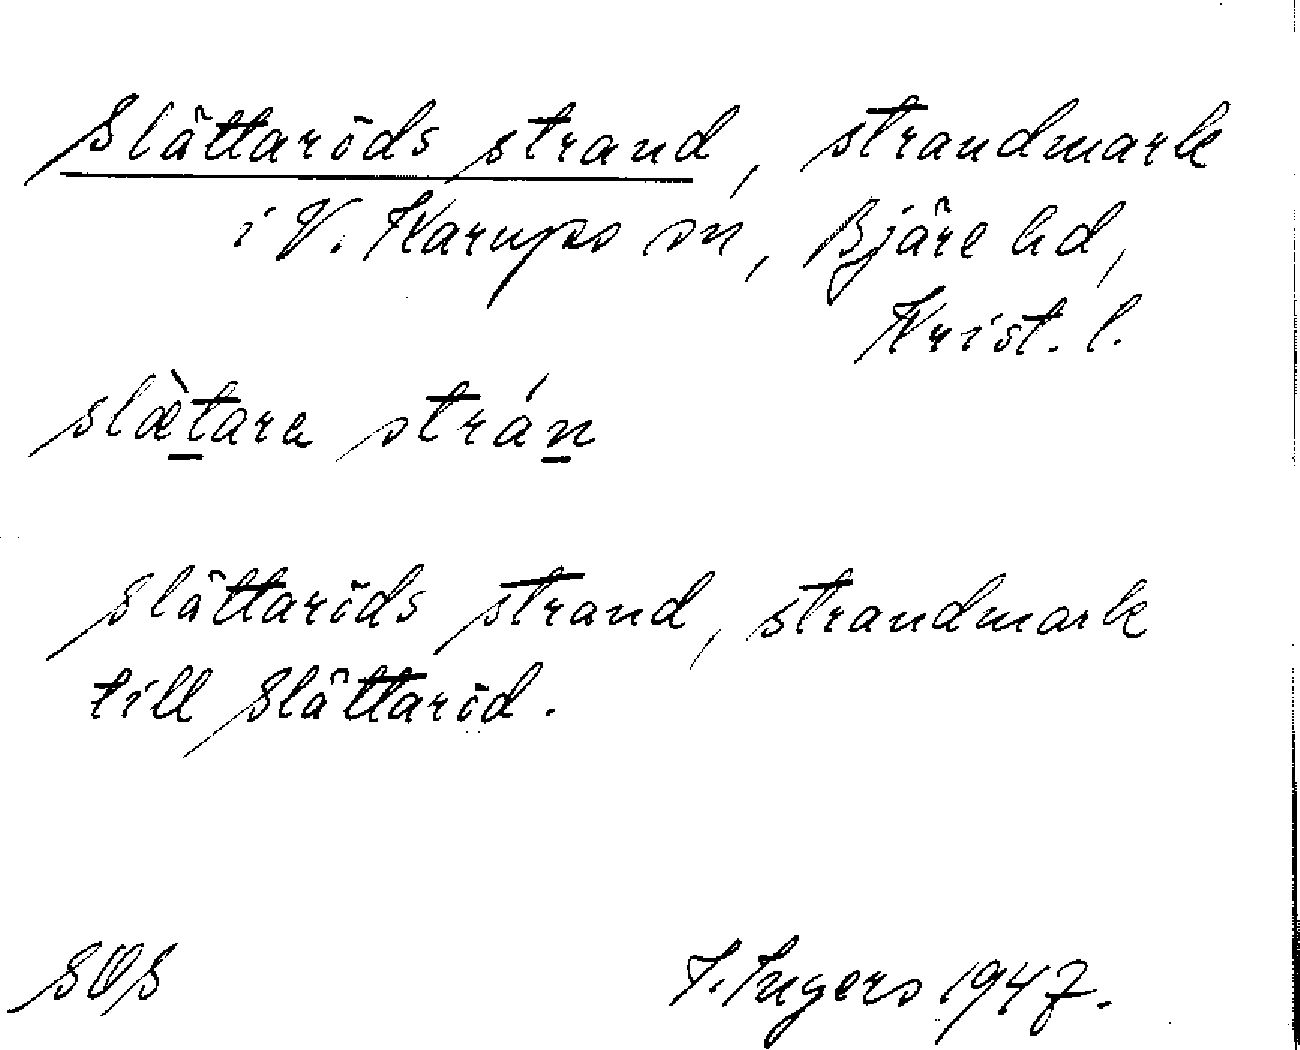 Slättaröds strand, strandmark
i V. Karups sn, Bjäre hd,
Krist. l.
slæ̀tara strán
Slättaröds strand, strandmark
till Slättaröd.
SOS
I. Ingers 1947.